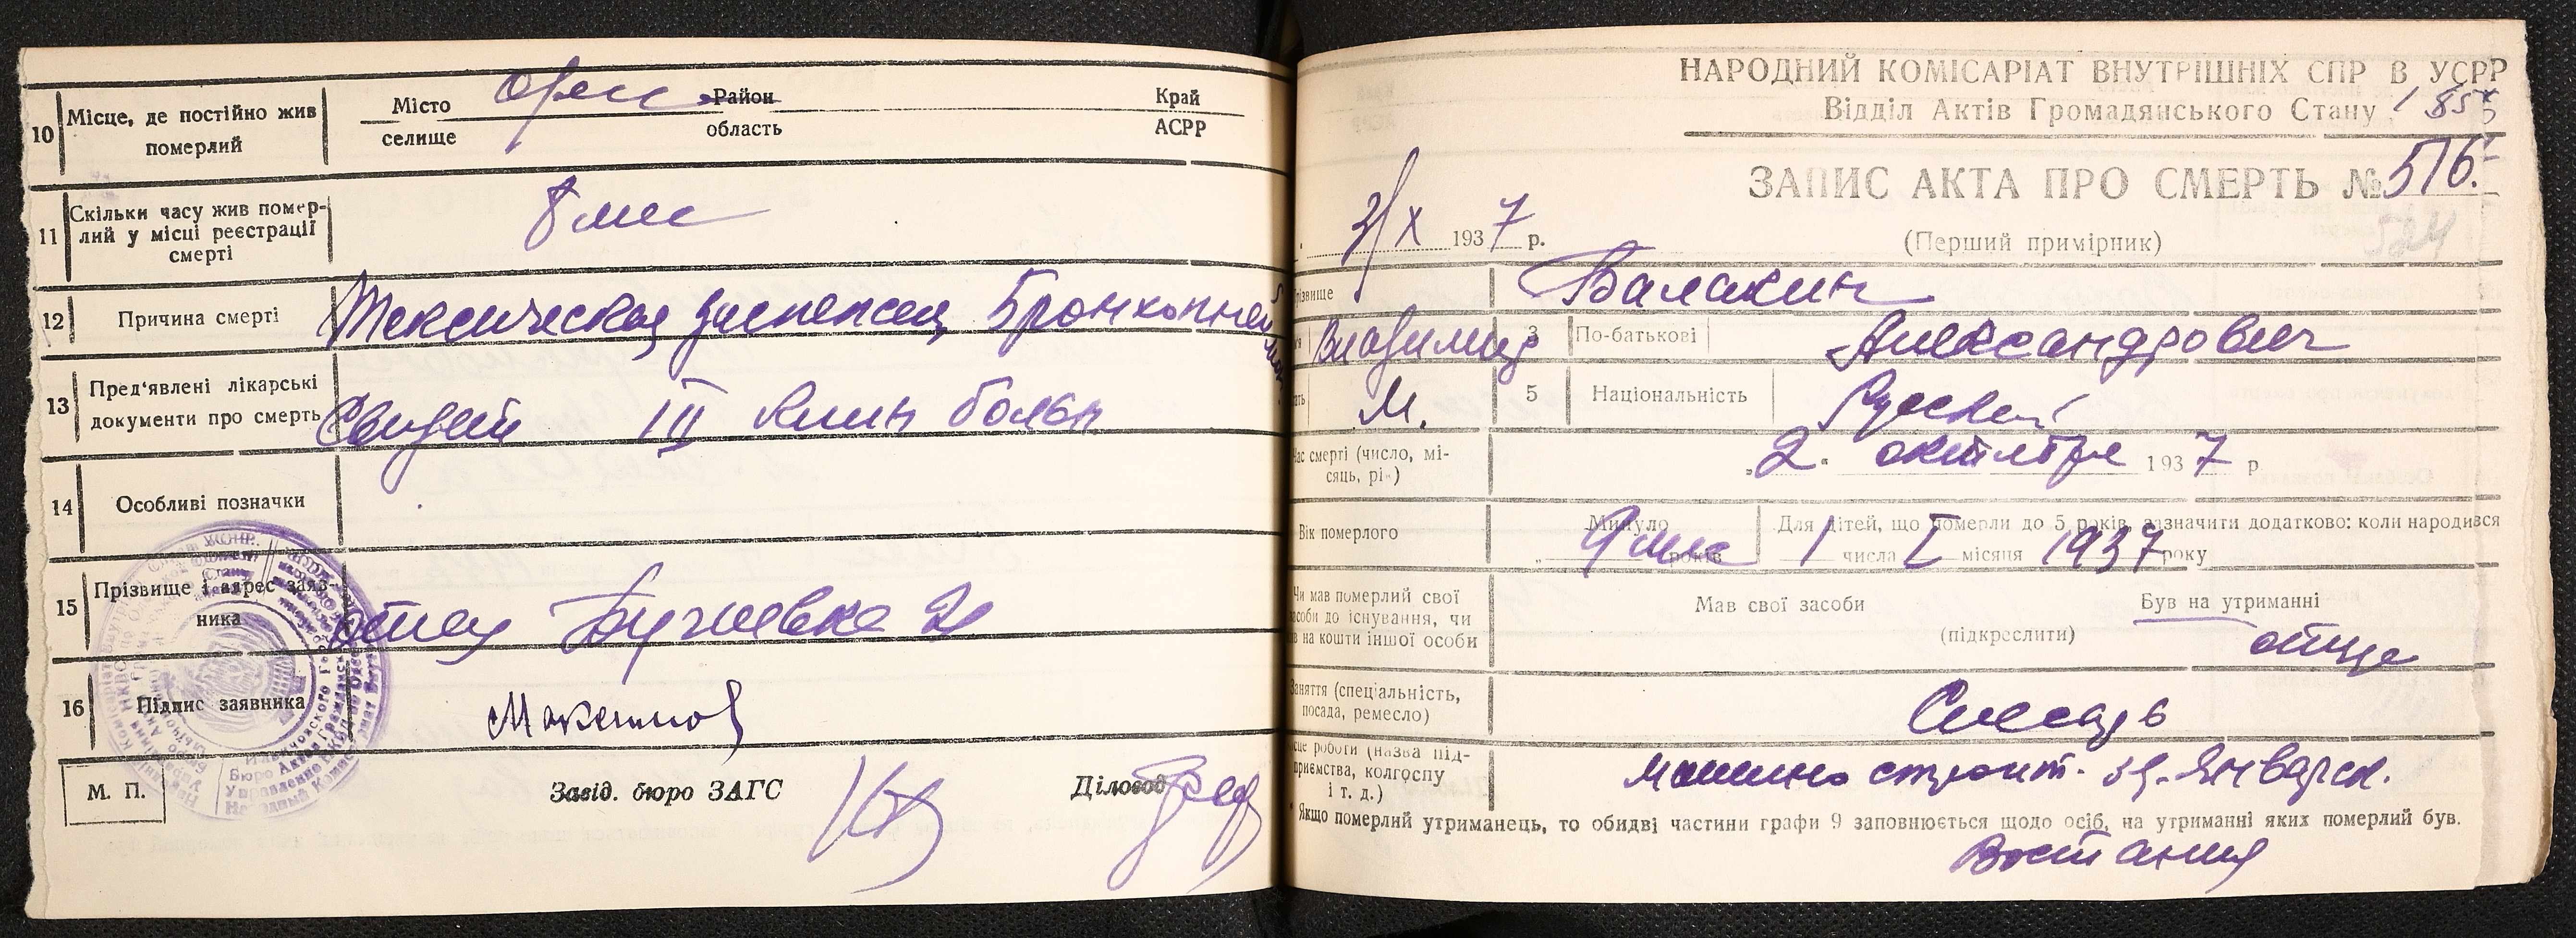 10 Місце, де постійно жив померлий
Місто Район Край
селище область АСРР
11 Скільки часу жив помер-
лий у місці реєстрації
смерті
8 мес
12 Причина смерті
Токсическая диспепсия Бронхопневмон.
13 Пред'явлені лікарські
документи про смерть
Свидет III клин больн
14 Особливі позначки
15 Прізвище і адрес заяв-
ника
отец 21
16 Підпис заявника
М. П. Завід. бюро ЗАГС Діловод
НАРОДНИЙ КОМІСАРІАТ ВНУТРІШНІХ СПР В УСРР
Відділ Актів Громадянського Стану
ЗАПИС АКТА ПРО СМЕРТЬ № 516.
524
3/X 1937 р.
(Перший примірник)
різвище Балакин
Владимир 3 По-батькові Александрович
М. 5 Національність Русский
ас смерті (число, мі-
сяць, рік)
„2" октября 1937 р
Вік померлого
Минуло 9 мес років
Для дітей, що померли до 5 років, зазначити додатково: коли народився
1 числа I місяця 1937 року
Чи мав померлий свої
засоби до існування, чи
в на кошти іншої особи
Мав свої засоби Був на утриманні
(підкреслити)
отца
Заняття (спеціальність,
посада, ремесло)
Слесарь
сце роботи (назва під-
приємства, колгоспу
і т. д.)
машино строит. зд. Январск.
Якщо померлий утриманець, то обидві частини графи 9 заповнюється щодо осіб, на утриманні яких померлий був.
Востания